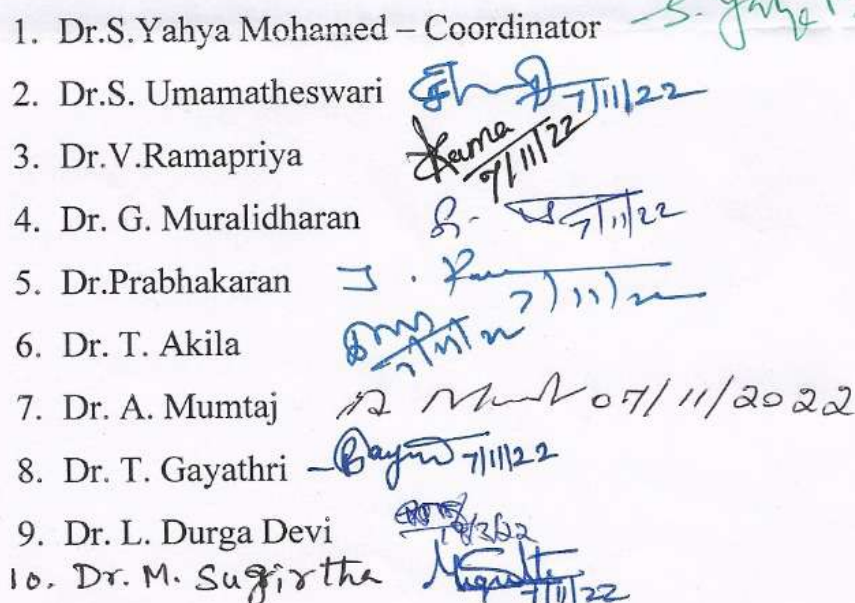 1. Dr.S.Yahya Mohamed – Coordinator
2. Dr.S. Umamatheswari 7/11/22
3. Dr.V.Ramapriya Rama 7/11/22
4. Dr. G. Muralidharan 7/11/22
5. Dr.Prabhakaran 7/11/22
6. Dr. T. Akila
7. Dr. A. Mumtaj 07/11/2022
8. Dr. T. Gayathri 7/11/22
9. Dr. L. Durga Devi
10. Dr. M. Sugirtha 7/11/22